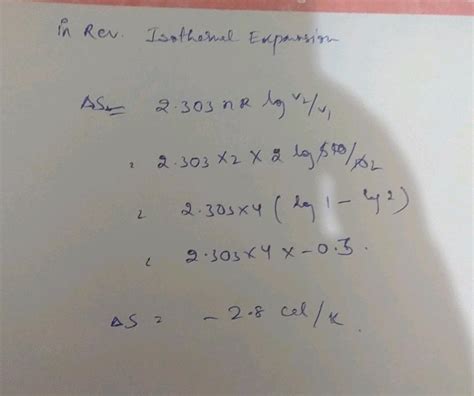 In Rev. Isothermal Expansion
ΔS = 2.303 n R log V2/V1
= 2.303 × 2 × 2 log
= 2.303×4 ( log 1 - log 2 )
= 2.303×4 × -0.3.
ΔS = -2.8 cal/K.